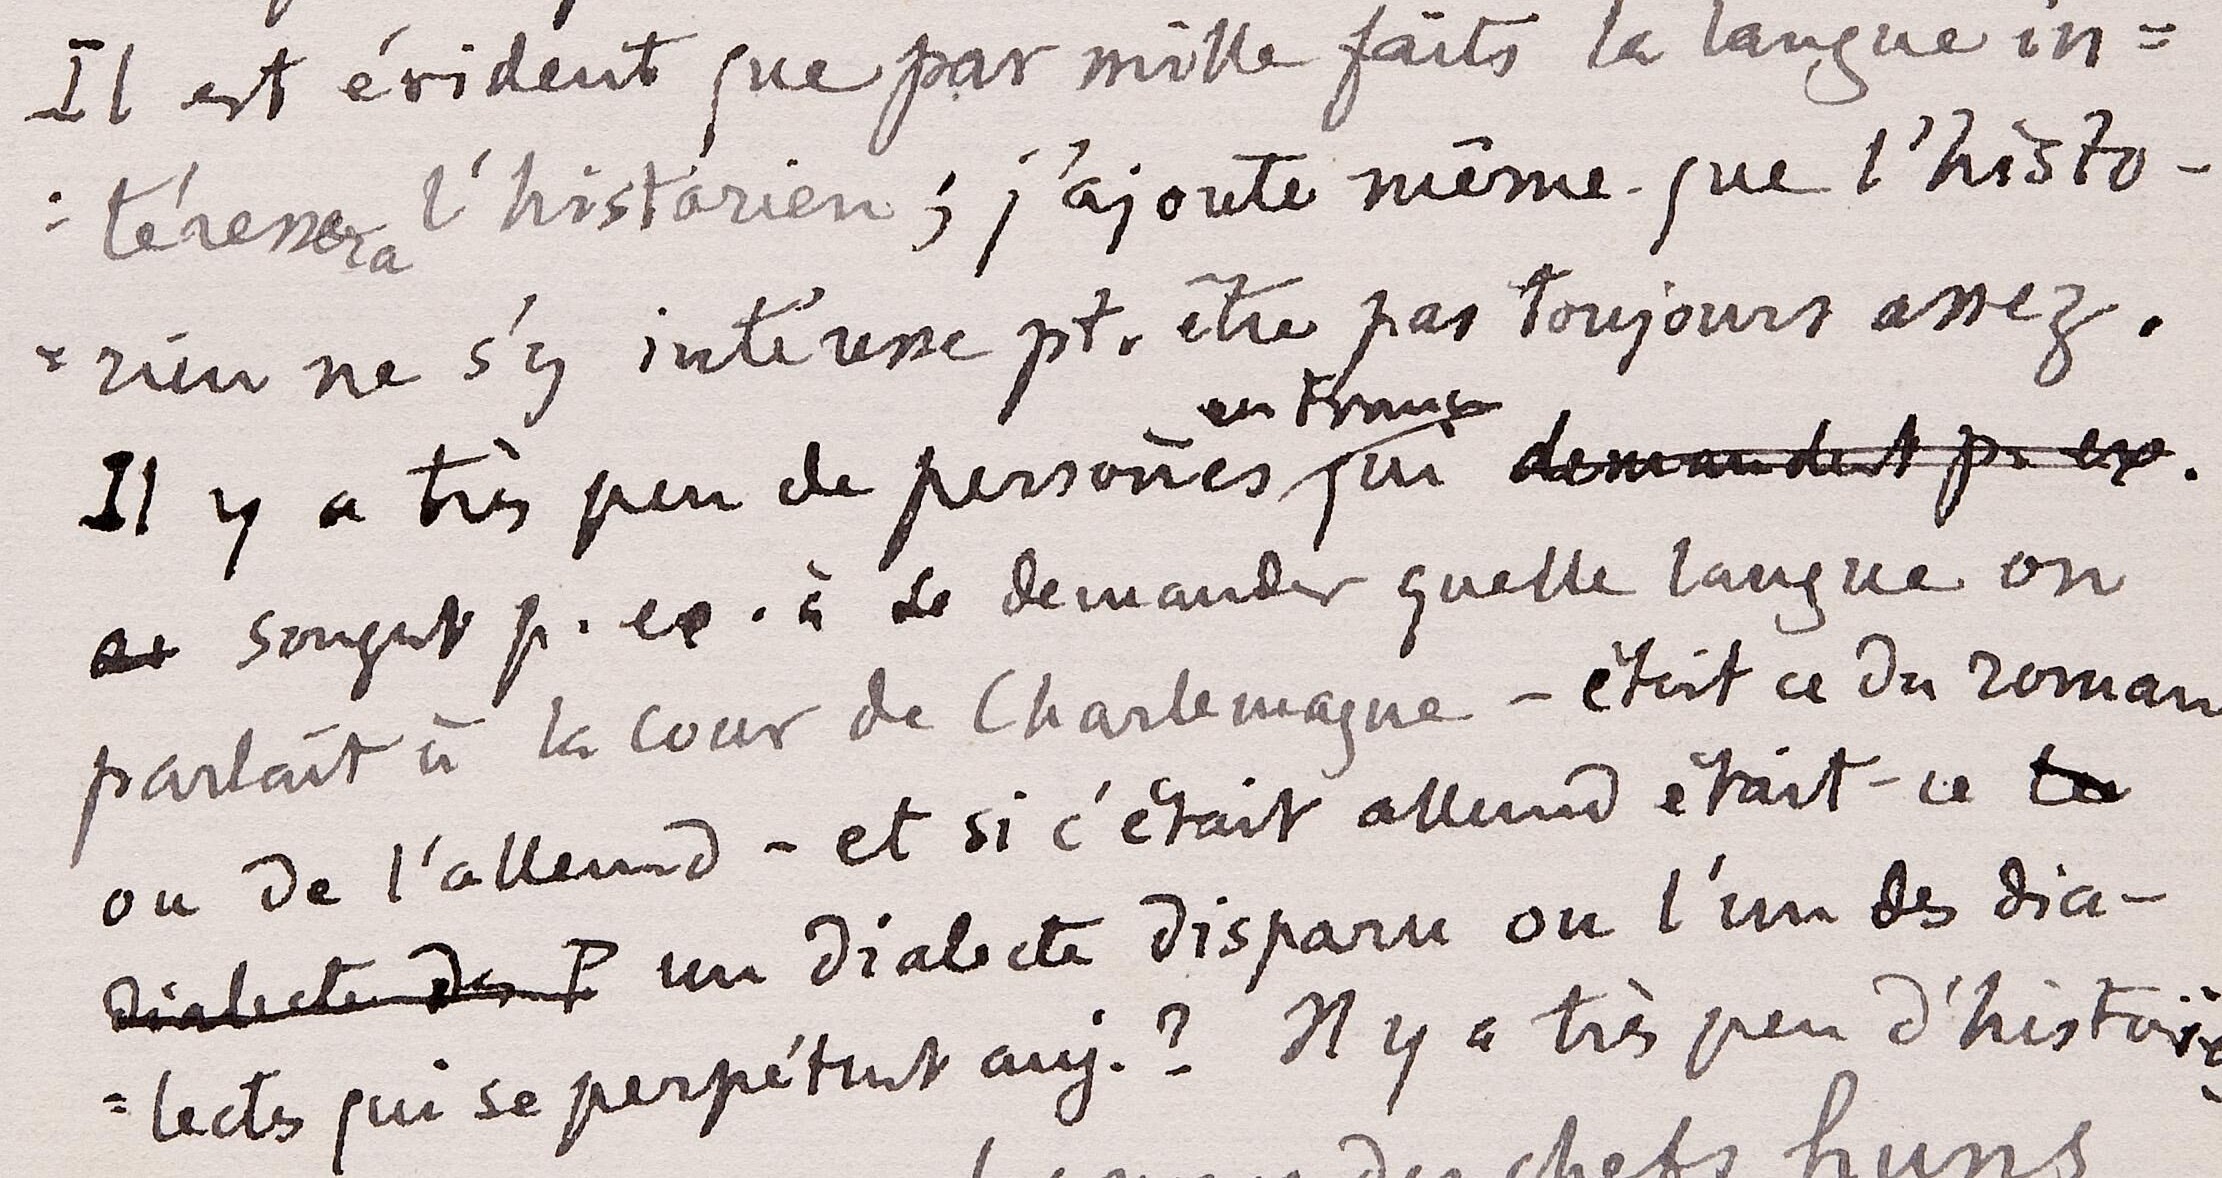 Il est évident que par mille faits la langue in=
=téressera l'historien ; j'ajoute même que l'histo-
=rien ne s'y intéresse pt. être pas toujours assez.
en France
Il y a très peu de persones qui demandent p. ex.
songent p. ex. à se demander quelle langue on
parlait à la cour de Charlemagne – était ce du roman
ou de l'allemd – et si c'était allemd était-ce le
dialecte des P un dialecte disparu ou l'un des dia-
=lectes qui se perpétuent auj. ? Il y a très peu d'histori
des chefs huns